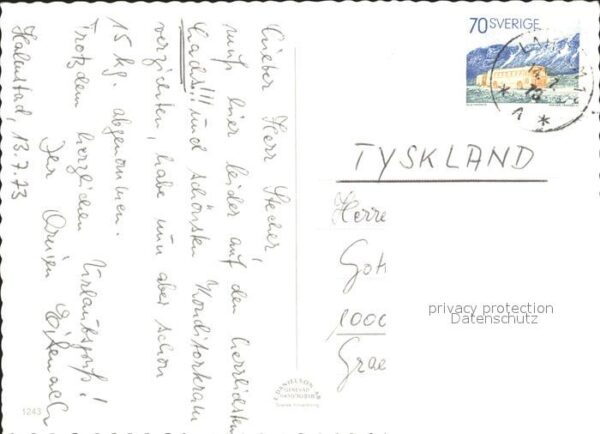 Halmstad, 13.7.73
Lieber Herr Stecher!
muß hier leider auf den herrlichsten
Lachs!!! und schönsten Konditorkram
verzichten, habe nun aber schon
15 kg. abgenommen.
Trotzdem herzlichen Urlaubsgruß!
Ihr
70 SVERIGE
TYSKLAND
Herre
Got
1000
Grae
privacy protection
Datenschutz
1243